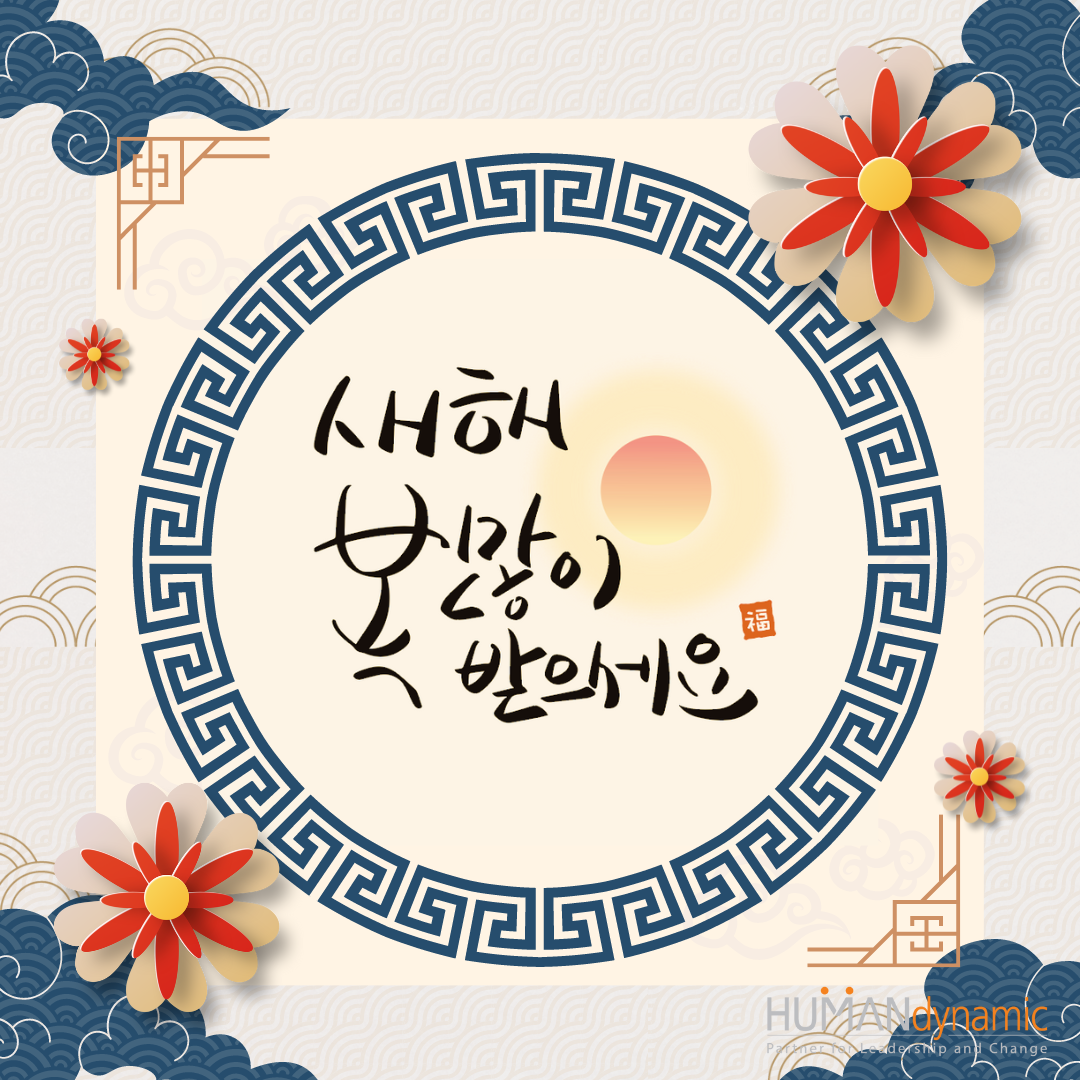 새해
복 많이
받으세요
福
HUMANdynamic
Partner for Leadership and Change